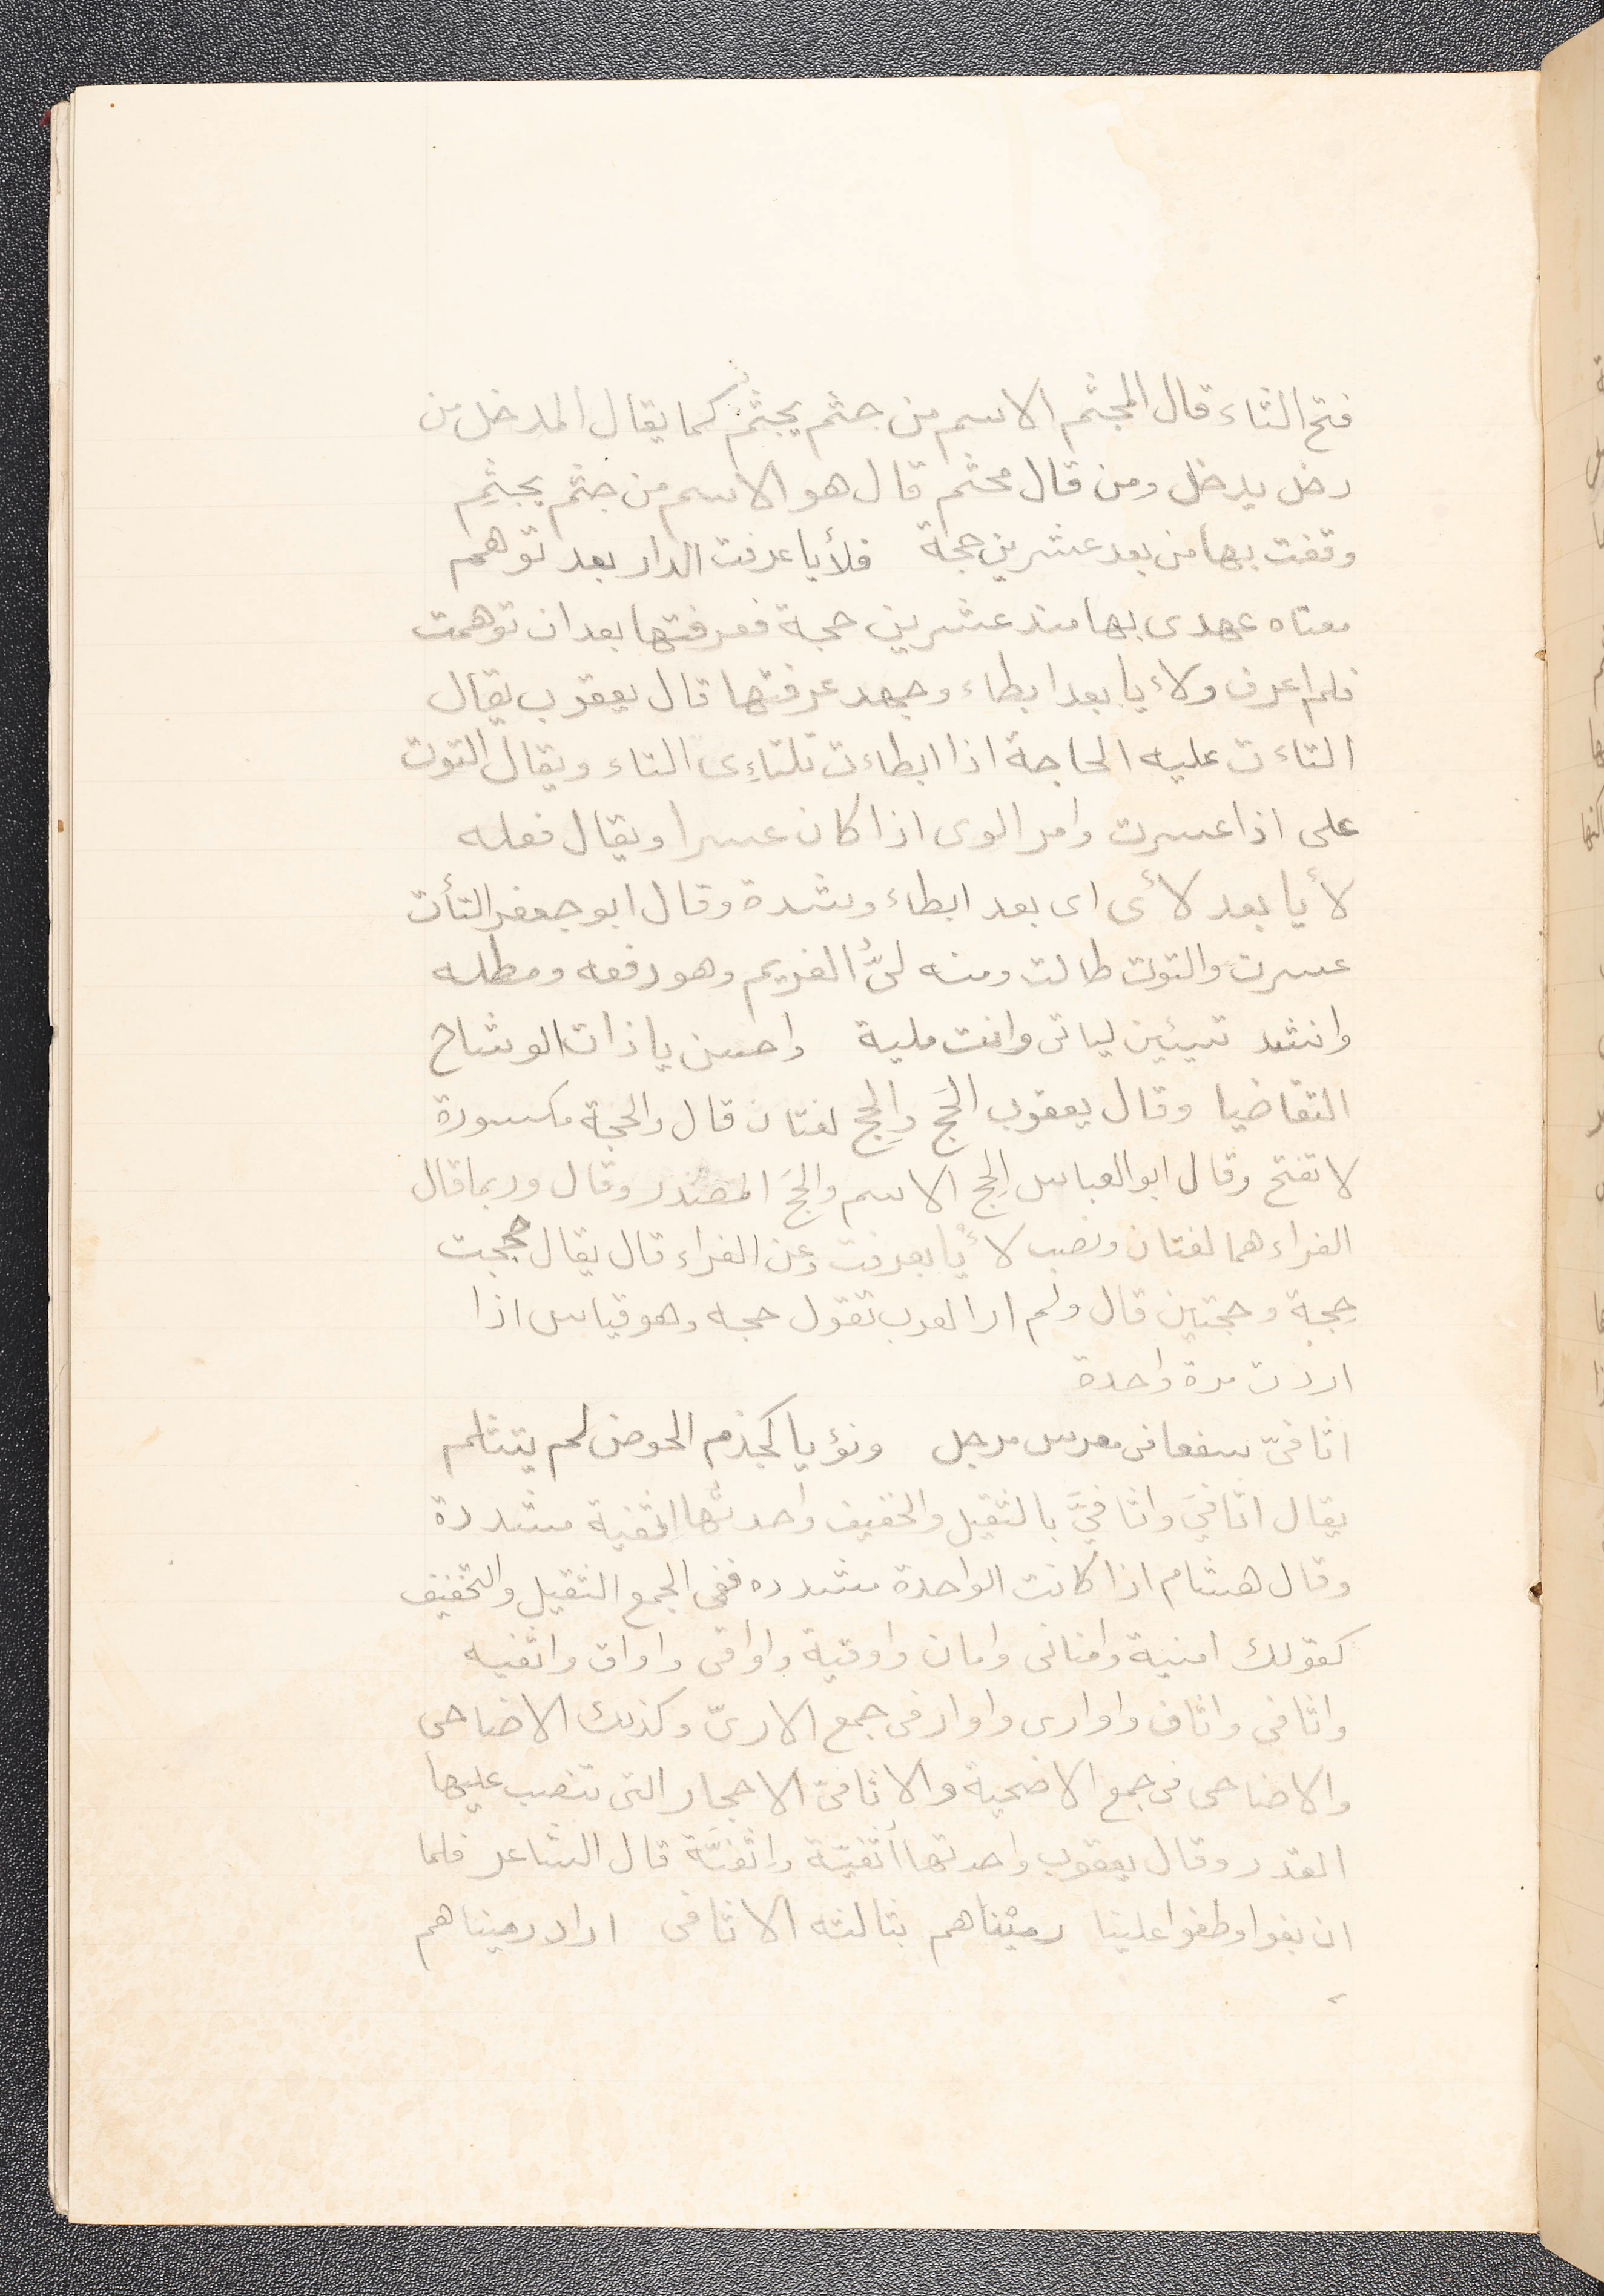 فتح الثاء قال المجثم الاسم من جثم يجثُم كما يقال المدخل من
دخل يدخل ومن قال مجثم قال هو الاسم من جثم يجثِم
وقفت بها من بعد عشرين حجة فلأيا عرفت الدار بعد توهم
معناه عهدى بها منذ عشرين حجة فعرفتها بعد ان توهمت
فلم اعرف ولاءيا بعد ابطاء وجهد عرفتها قال يعقوب يقال
التاءت عليه الحاجة اذا ابطاءت تلتاءِى التاء ويقال التوت
على اذا عسرت وامر الوى اذا كان عسرا ويقال فعله
لأيا بعد لأى اى بعد ابطاء وشدة وقال ابو جعفر التأت
عسرت والتوت طالت ومنه لىُّ الغريم وهو دفعه ومطله
وانشد تسيئين لياتى وانت ملية واحسن يا ذات الوشاح
التقاضيا وقال يعقوب الحَج والحِج لغتان قال والحجة مكسورة
لا تفتح وقال ابو العباس الحِج الاسم والحَج المصدر وقال وربما قال
الفراء هما لغتان ونصب لاءيا بعرفت وعن الفراء قال يقال حججت
حِجة وحجتين قال ولم ار العرب تقول حجه وهو قياس اذا
اردت مرة واحدة
اثافىّ سفعا فى معرس مرجل ونؤيا كجذم الحوض لم يتثلم
يقال اثافيَ واثافيَّ بالثقيل والخفيف واحدتها اثفية مشددة
وقال هشام اذا كانت الواحدة مشدده ففى الجمع الثقيل والتخفيف
كقولك امنية وامانى وامان واوقية واواقى واواق واثفيه
واثافى واثاف واوارى واوار فى جمع الارىّ وكذلك الاضاحى
والاضاحى فى جمع الاضحية والاثافىّ الاحجار التى تنصب عليها
القدر وقال يعقوب واحدتها أُثفيّة وإثفيّة قال الشاعر فلما
ان بغوا وطغوا علينا رميناهم بثالثه الاثافى اراد رميناهم